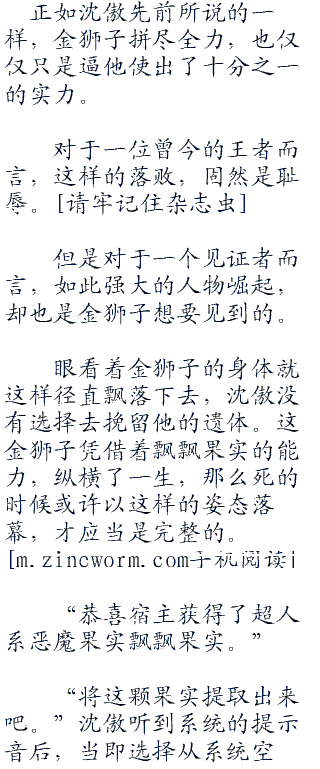 正如沈傲先前所说的一
样，金狮子拼尽全力，也仅
仅只是逼他使出了十分之一
的实力。
对于一位曾今的王者而
言，这样的落败，固然是耻
辱。[请牢记住杂志虫]
但是对于一个见证者而
言，如此强大的人物崛起，
却也是金狮子想要见到的。
眼看着金狮子的身体就
这样径直飘落下去，沈傲没
有选择去挽留他的遗体。这
金狮子凭借着飘飘果实的能
力，纵横了一生，那么死的
时候或许以这样的姿态落
幕，才应当是完整的。
[m.zincworm.com手机阅读i
“恭喜宿主获得了超人
系恶魔果实飘飘果实。”
“将这颗果实提取出来
吧。”沈傲听到系统的提示
音后，当即选择从系统空